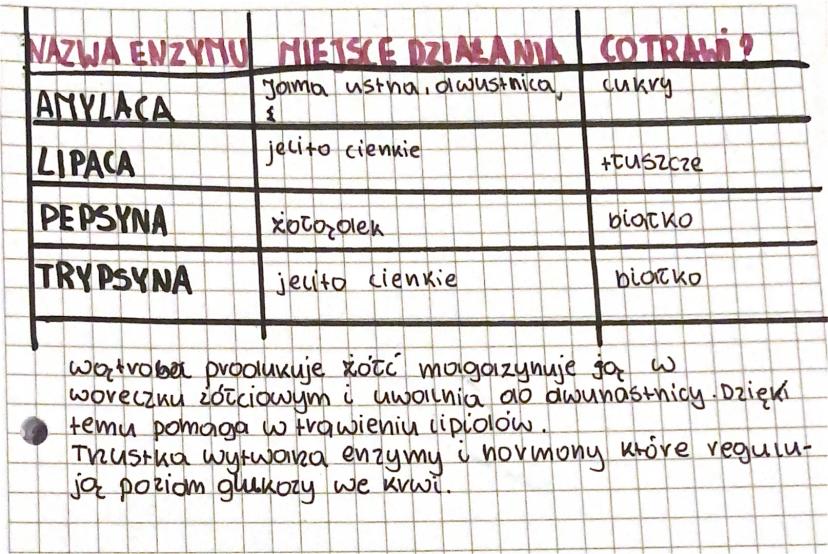 NAZWA ENZYMU MIEJSCE DZIAŁANIA CO TRAWI?
AMYLACA Jama ustna, dwustnica, cukry
LIPACA jelito cienkie tłuszcze
PEPSYNA żołądek białko
TRYPSYNA jelito cienkie białko
wątroba produkuje żółć magazynuje ją w
woreczku żółciowym i uwalnia do dwunastnicy. Dzięki
temu pomaga w trawieniu lipidów.
Trzustka wytwarza enzymy i hormony które regulu-
ją poziom glukozy we krwi.